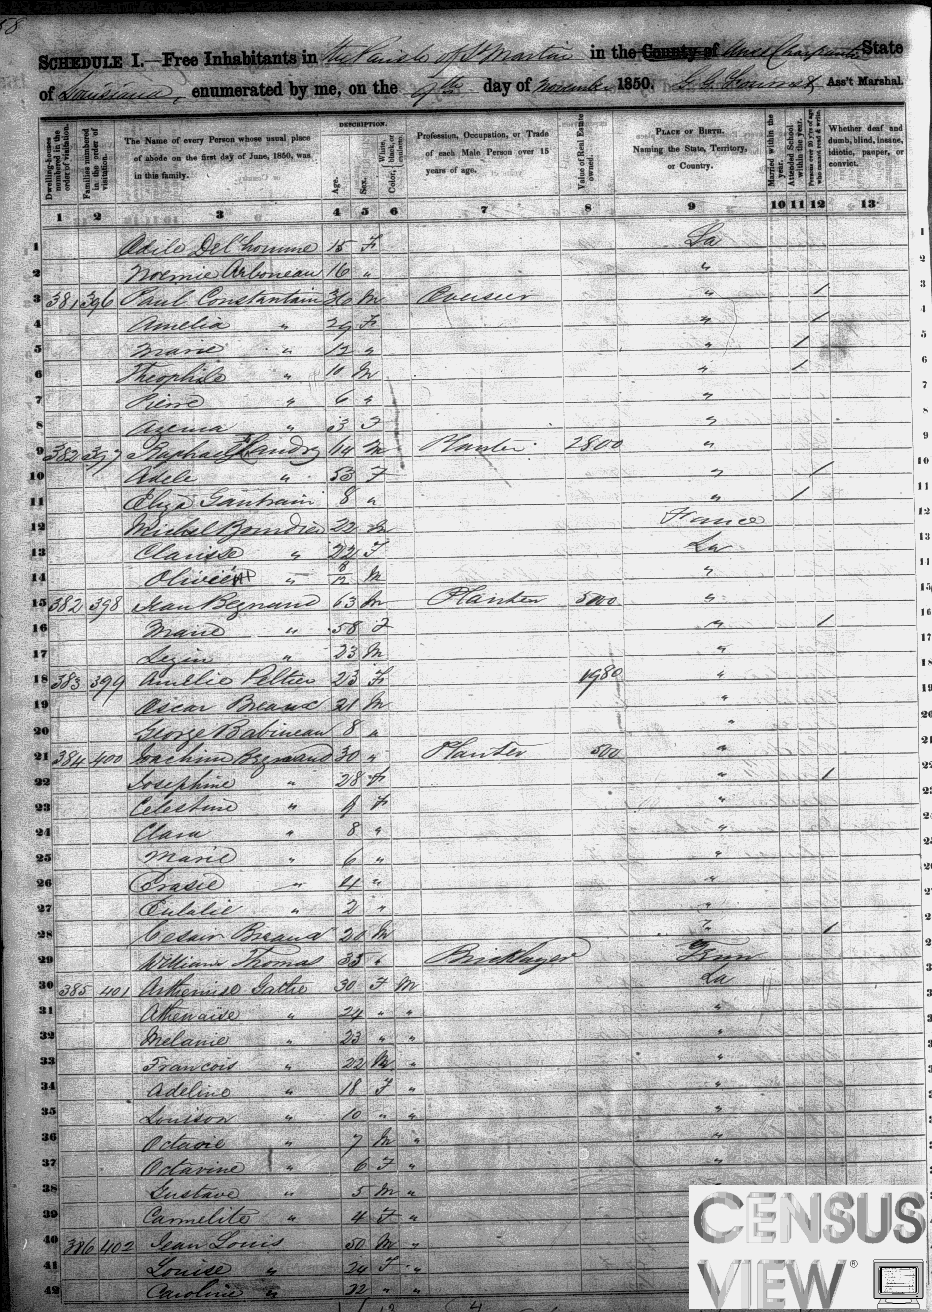 58
SCHEDULE I.—Free Inhabitants in the Parish of St Martin in the County of State
of Louisiana, enumerated by me, on the 9th day of November 1850. Ass't Marshal.
Dwelling-houses numbered in the order of visitation.
Families numbered in the order of visitation.
The Name of every Person whose usual place of abode on the first day of June, 1850, was in this family.
DESCRIPTION.
Age.
Sex.
Color, White, black, or mulatto.
Profession, Occupation, or Trade of each Male Person over 15 years of age.
Value of Real Estate owned.
PLACE OF BIRTH. Naming the State, Territory, or Country.
Married within the year.
Attended School within the year.
Persons over 20 y'rs of age who cannot read & write.
Whether deaf and dumb, blind, insane, idiotic, pauper, or convict.
1 2 3 4 5 6 7 8 9 10 11 12 13
1 Adile Del'homme 15 F La
2 Noemie Arboneau 16 " "
3 381 396 Paul Constantain 36 M Overseer " /
4 Amelia " 29 F " /
5 Marie " 12 " " /
6 Theophile " 10 M " /
7 Pierre " 6 " "
8 Azema " 3 F "
9 382 397 Raphael Landry 64 M Planter 2800 "
10 Adele " 53 F " /
11 Eliza Gautrain 8 " " /
12 Michel Bourdier 22 M France
13 Clarisse " 22 F La
14 Olivier " M "
15 382 398 Jean Begnaud 63 M Planter 500 "
16 Marie " 58 F " /
17 Lezin " 23 M "
18 383 399 Amelie Peltier 23 F 1980 "
19 Oscar Breaux 21 M "
20 George Babineau 8 " "
21 384 400 Joachim Begnaud 30 " Planter 500 "
22 Josephine " 28 F " /
23 Celestine " 9 F "
24 Clara " 8 " "
25 Marie " 6 " "
26 Erasie " 4 " "
27 Eulalie " 2 " "
28 Cesair Breaud 20 M " /
29 William Thomas 33 " Bricklayer Tenn
30 385 401 Arthemise Gathe 30 F M La
31 Athenaise " 24 " " "
32 Melanie " 23 " " "
33 Francois " 22 M " "
34 Adeline " 18 F " "
35 Louison " 10 " " "
36 Octavie " 7 M " "
37 Octavine " 6 F " "
38 Gustave " 5 M "
39 Carmelite " 4 F "
40 386 402 Jean Louis 50 M "
41 Louise " 24 F "
42 Caroline " 22 " "
CENSUS
VIEW®